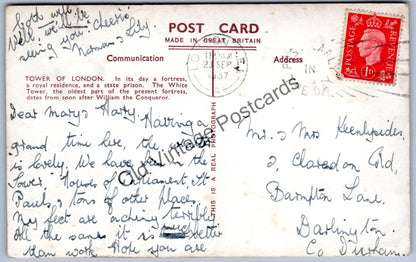 both well
Well, we'll be
seeing you "cheerio"
Norman & Lily
POST CARD
MADE IN GREAT BRITAIN
Communication
Address
TOWER OF LONDON. In its day a fortress,
a royal residence, and a state prison. The White
Tower, the oldest part of the present fortress,
dates from soon after William the Conqueror.
22 SEP
1937
POSTAGE
REVENUE
1D
IN
Dear Mary & Harry. Having a
grand time here, the weather
is lovely. We have been in the
Tower, Houses of Parliament, St
Pauls, & tons of other places.
My feet are aching terribly.
All the same it is better
than work. Hope you are
Mr. & Mrs Keenlysides.
2, Claredon Rd,
Barmpton Lane.
Darlington.
Co. Durham.
Old Vintage Postcards